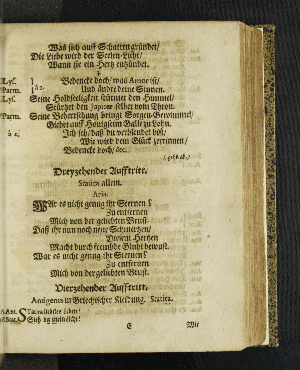 Was sich auff Schatten gründet/
Die Liebe wird der Seelen-Licht/
Wann sie ein Hertz entzündet.
Lys. Bedencke doch/ was Amor ist/
Parm. à 2. Und ändre deine Sinnen.
Lys. Seine Holdseeligkeit stürmet den Himmel/
Stürtzet den Jupiter selber vom Thron.
Parm. Seine Beherrschung bringt Sorgen-Getümmel/
Giebet auff Honigseim Galle zu Lohn.
à 2. Ich seh/ daß du verblendet bist/
Wie wird dein Glück zerrinnen/
Bedencke doch/ &c.
(gehn ab.)
Dreyzehender Aufftritt.
Statira allein.
Aria.
War es nicht genug ihr Sternen?
Zu entfernen
Mich von der geliebten Brust.
Daß ihr nun noch neue Schmertzen/
Diesem Hertzen
Macht durch frembde Gluht bewust.
War es nicht genug ihr Sternen?
Zu entfernen
Mich von der geliebten Brust.
Vierzehender Aufftritt.
Antigenes in Griechischer Kleidung. Statira.
Ant. Statira liebstes Leben!
Stat. Sieh
E
Wie